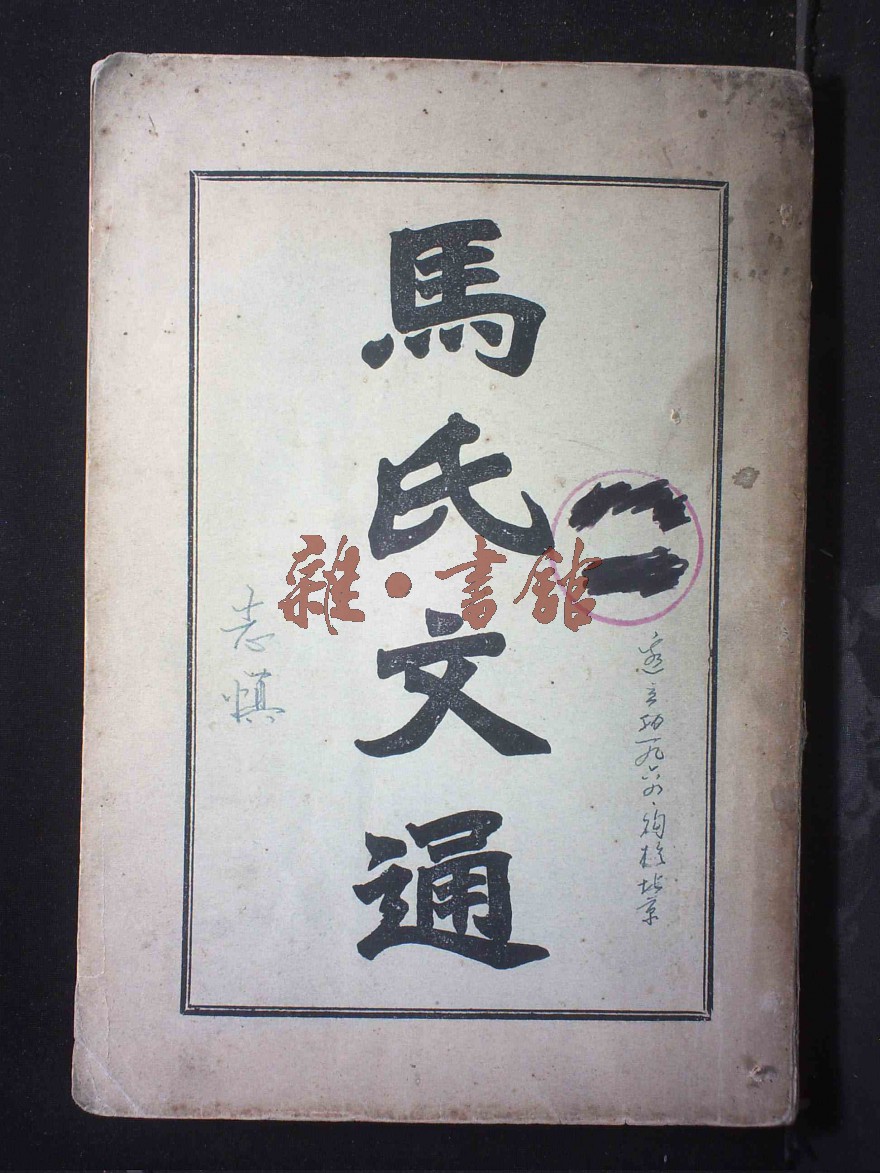 馬氏文通
雜·書館
志慎
一九六四·购於北京